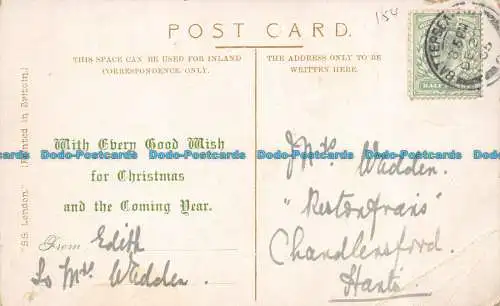 POST CARD.
154
THIS SPACE CAN BE USED FOR INLAND
CORRESPONDENCE ONLY.
THE ADDRESS ONLY TO BE
WRITTEN HERE.
BATTERSEA
HALF
"SS. London." [Printed in Britain.]
With Every Good Wish
for Christmas
and the Coming Year.
From Edith
To Mrs Wadden.
Mrs. Wadden.
Chandlersford.
Hants.
Dodo-Postcards Dodo-Postcards Dodo-Postcards
Dodo-Postcards Dodo-Postcards Dodo-Postcards
Dodo-Postcards Dodo-Postcards Dodo-Postcards